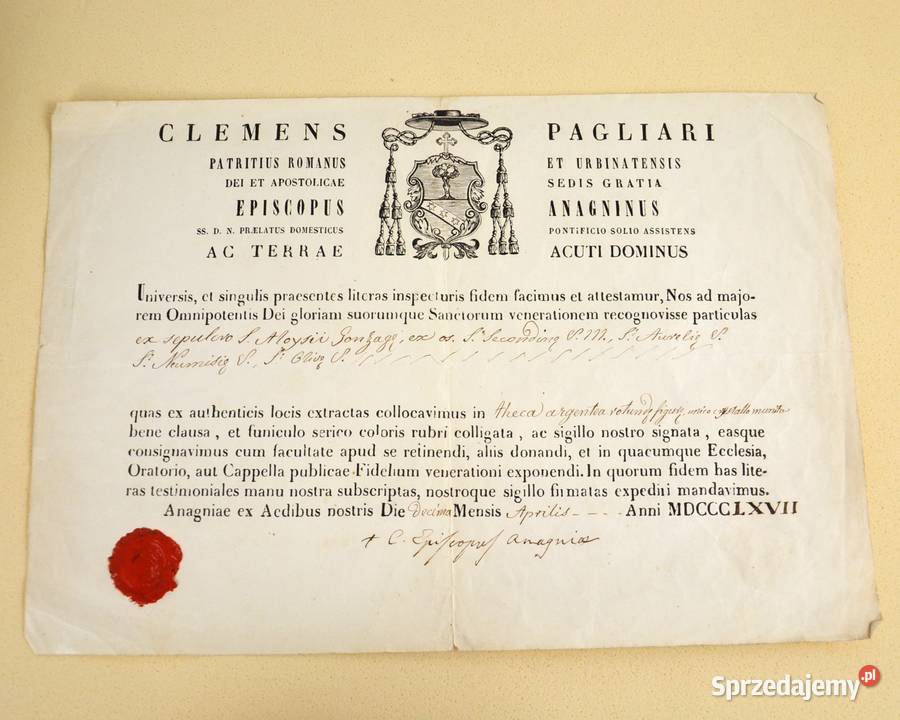 CLEMENS PAGLIARI
PATRITIUS ROMANUS ET URBINATENSIS
DEI ET APOSTOLICAE SEDIS GRATIA
EPISCOPUS ANAGNINUS
SS. D. N. PRÆLATUS DOMESTICUS PONTIFICIO SOLIO ASSISTENS
AC TERRAE ACUTI DOMINUS
Universis, et singulis praesentes literas inspecturis fidem facimus et attestamur, Nos ad majo-
rem Omnipotentis Dei gloriam suorumque Sanctorum venerationem recognovisse particulas
ex sepulcro S. Aloysii Gonzagę, ex os. Sę Secondinę V. M., Sę Aurelię V.
Sę Neumisię V., Sę Olivę V.
quas ex authenticis locis extractas collocavimus in theca argentea rotundę figurę, unico crystallo munita
bene clausa, et funiculo serico coloris rubri colligata, ac sigillo nostro signata, easque
consignavimus cum facultate apud se retinendi, aliis donandi, et in quacumque Ecclesia,
Oratorio, aut Cappella publicae Fidelium venerationi exponendi. In quorum fidem has lite-
ras testimoniales manu nostra subscriptas, nostroque sigillo firmatas expediri mandavimus.
Anagniae ex Aedibus nostris Die Decima Mensis Aprilis - - - - Anni MDCCCLXVII
+ C. Episcopus Anagniæ
Sprzedajemy.pl